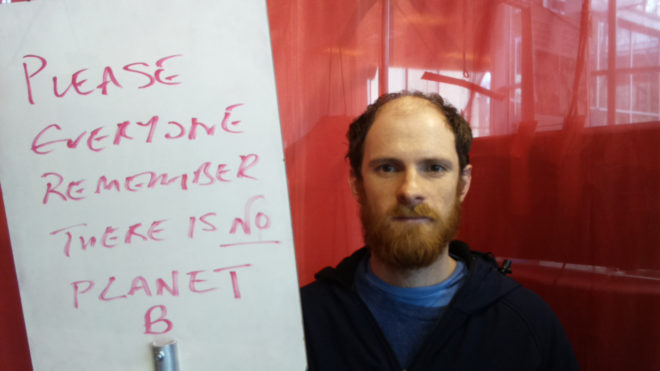 PLEASE
EVERYONE
REMEMBER
THERE IS NO
PLANET
B